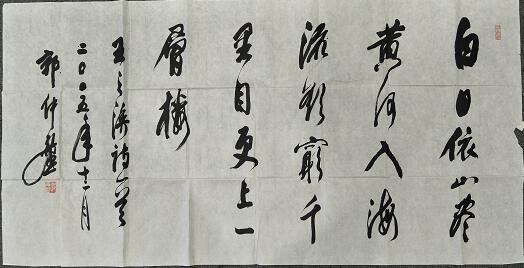 白日依山尽
黄河入海
流欲穷千
里目更上一
层楼
王之涣诗一首
二〇〇五年十二月
郭仲